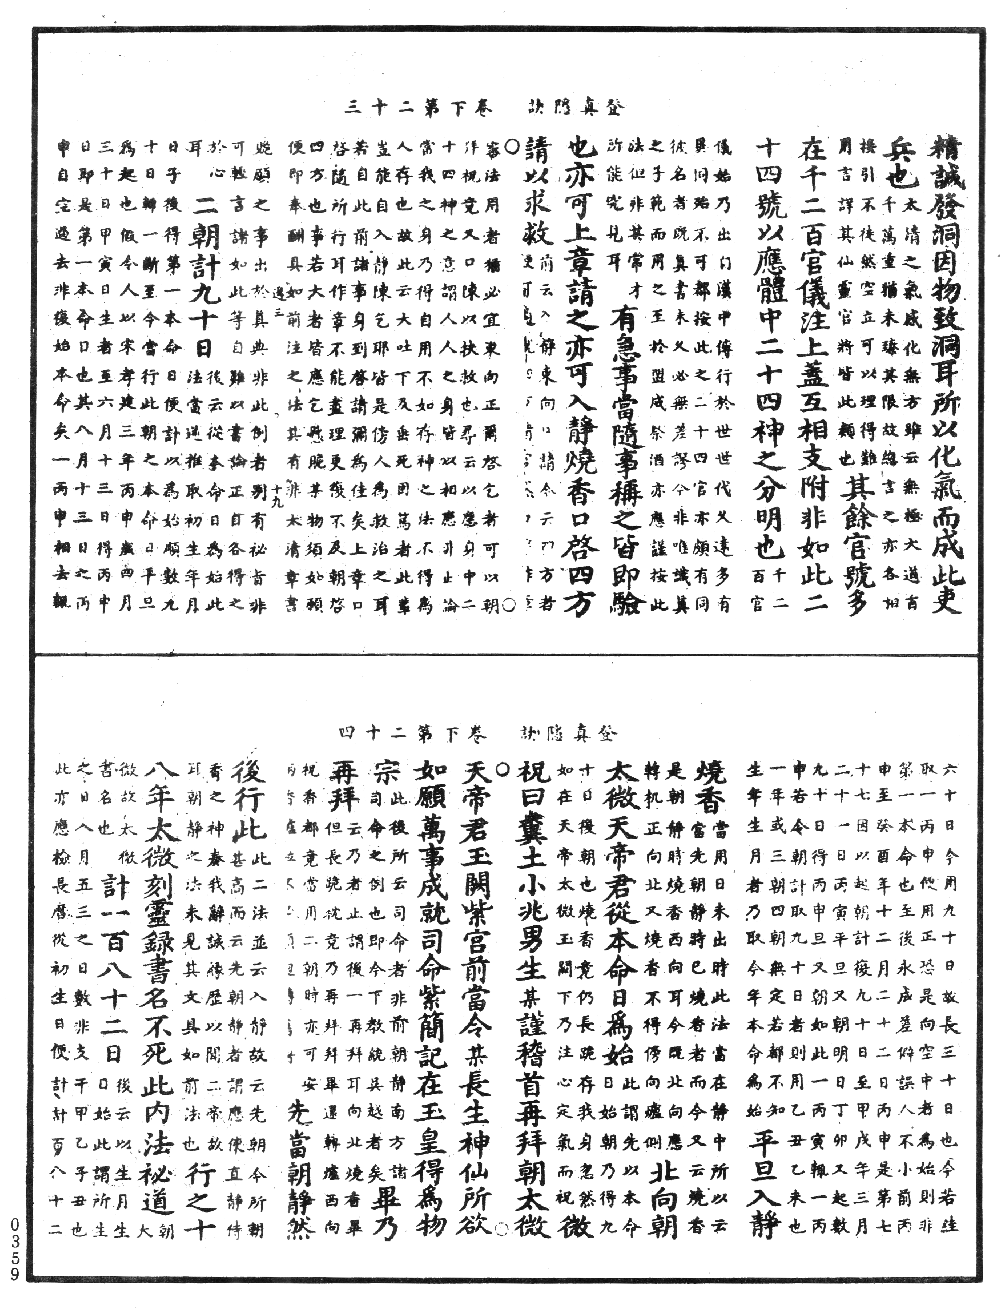 登真隱訣　卷下第二十三
精誠發洞因物致洞耳所以化氣而成此吏
兵也太清之氣感化無方雖云無極大道百
千萬重猶未臻其限故總言之亦各相
接引不徒然空立可以理得難
用言詳其仙靈官將皆此類也其餘官號多
在千二百官儀注上蓋互相支附非如此二
十四號以應體中二十四神之分明也千二
百官
儀始乃出自漢中傳行於世世代久遠多有
異同殆不可都按此之二十四官亦頗有同
彼名者既真書未久必無差謬今非唯識真
之子範而用之至於盟威祭酒亦應謹按此
法但非其常才
所能究見耳有急事當隨事稱之皆即驗
也亦可上章請之亦可入靜燒香口啓四方
請以求救前云入靜東向口請今云四方者
審法用者猶必宜東向正爾啓乞者可以朝
拜祝竟又口陳以扶救也尋云以應身中二
十四神之意謂人人之身皆以相應非止論
當我之身乃得自用不如存神之法不得為
人存也故此云大吐下及垂死困篤者此輩
豈能自入靜陳乞耶皆是傍人為救治之耳
若自此前諸事到啓請彌佳矣上章口
啓隨所行耳作章不能盡理更幾不及朝啓
四方也事若大者皆應乞懸賜某物須如願
便即奉酬具如前注之法其有非太清章書
遜三　十九
婉願之事出於真典非此例者別有祕旨非
可輕言諸如此等自難以書論正自各得之
於心
耳二朝計九十日後云從本命日為始此
法當逆推取初生年月
日子後得第一本命日便計以為始順數九
十日輒一斷至今當行此朝之本命日平旦
為起也假令人以宋孝建三年丙申歲四月
三十日甲寅日生者至六月十三日得丙申
日即是第一本命日也其八月十三日之丙
申自空過去非復始本命矣一丙申相去輒
登真隱訣　卷下第二十四
六十日今用九十日故長三十日也今若經
取一丙申便用正恐是向空申者為始則非
第一本命也至後永成差僻誤人不小前丙
申至癸酉年十二月二十二日丙申是第七
十七因以起朝計後九十日至甲戌年三月
二十一日丙寅平旦又朝明日丁卯又起數
九十日得丙申旦又朝如此一丙寅輒一丙
申若今朝計取九十日者則不用乙丑乙未也
一年或三朝四朝無定若都不知
生年生月者乃取今年本命為始平旦入靜
燒香當用日未出時此法當在靜中所以云
當先朝靜時已燒香而今又云燒香
是朝靜時燒香西向耳今既北向應
轉机正向北又燒香不得傍向爐側北向朝
太微天帝君從本命日為始此謂先以本命
日始朝乃得九
十日復朝也燒香竟仍長跪存我身忽然
如在天帝太微玉闕下乃注心定氣而祝微
祝曰糞土小兆男生某謹稽首再拜朝太微
天帝君玉闕紫宮前當令某長生神仙所欲
如願萬事成就司命紫簡記在玉皇得為物
宗此後所云司命者非前朝靜南方諸
司命之例也即今下教統吳越者矣畢乃
再拜云乃者止謂後一再拜耳向北燒香畢
但長跪祝竟乃再拜拜畢還轉爐西向
祝香都竟當用二朝時亦可安
先當朝靜然
後行此此二法並云入靜故云先朝今所朝
甚高而云先朝靜者謂應使直靜侍
香之神奏我辭誠緣歷以聞二帝故
耳朝靜之法未見其文具如前法也行之十
八年太微刻靈錄書名不死此內法祕道朝
大
微故太微
書名也計一百八十二日後云以生月生
日始此謂所生
之日八月五三之日數非支干甲乙子丑也
此亦應檢長曆從初生日便計計百八十二
0359